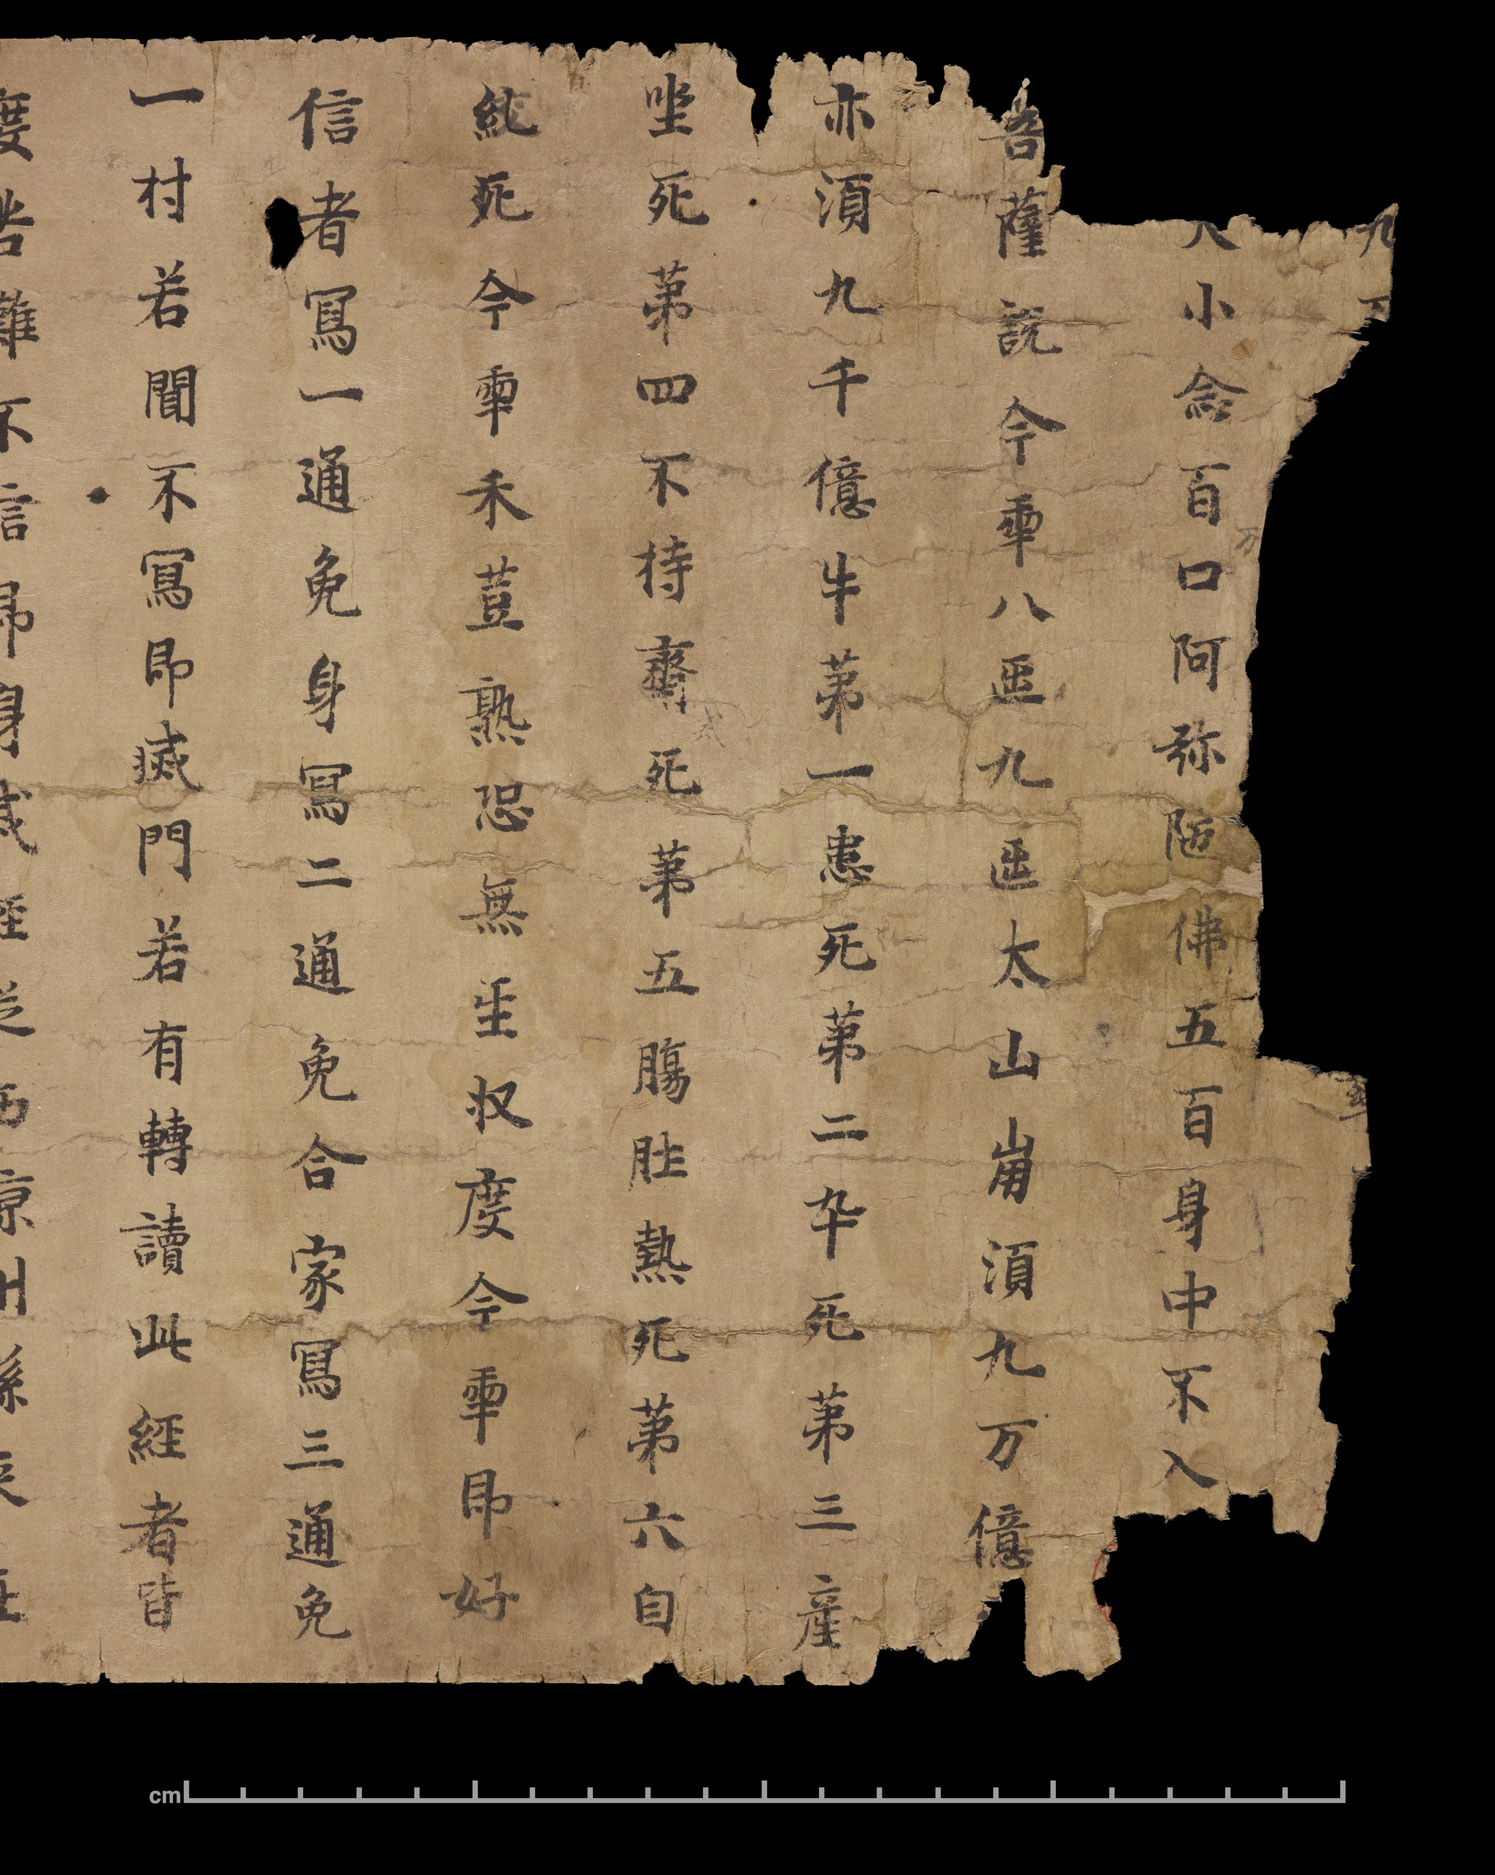 九万
大小念百口阿弥陁佛五百身中不入
菩薩說今𠡦八𠥱九𠥱太山崩湏九万億
亦湏九千億牛第一患死第二卒死第三産
坐死第四不持齋死第五腸肚熱死第六自
死今𠡦禾荳熟恐無𤯔収度今𠡦即好
信者寫一通免身寫二通免合家寫三通免
一村若聞不寫即滅門若有轉讀此經者皆
度苦難不信即身滅經從西凉州縣